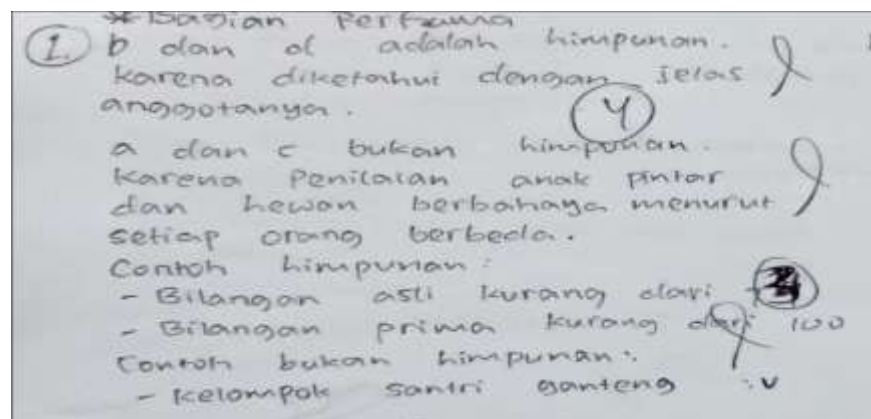 * Bagian Pertama
1. b dan d adalah himpunan.
karena diketahui dengan jelas
anggotanya.
4
a dan c bukan himpunan.
Karena Penilaian anak pintar
dan hewan berbahaya menurut
setiap orang berbeda.
Contoh himpunan:
- Bilangan asli kurang dari
- Bilangan prima kurang dari 100
Contoh bukan himpunan:
- Kelompok santri ganteng :v